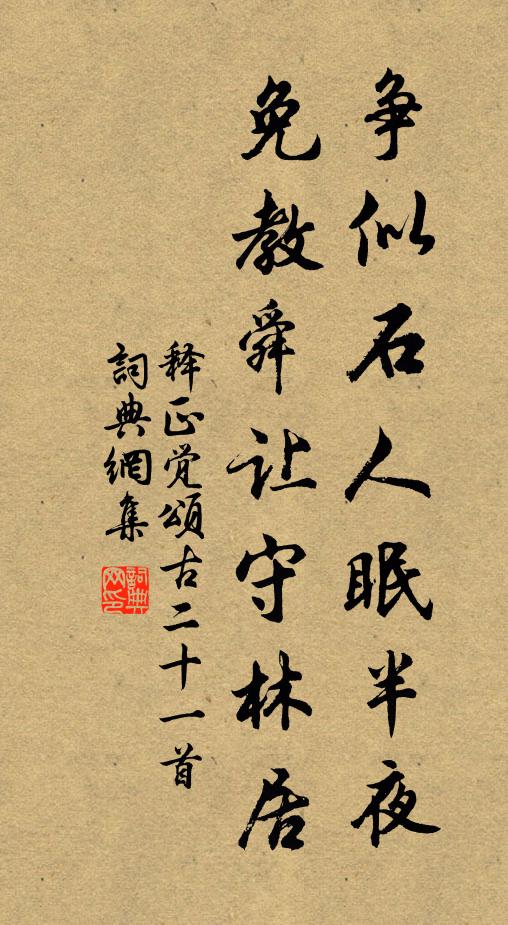 争似石人眠半夜
免教舜让守林居
释正觉颂古二十一首
詞典網集
詞典网印